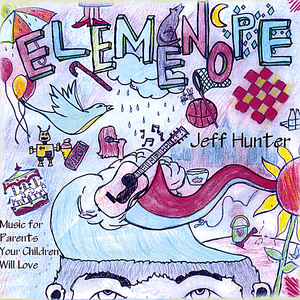 ELEMENOPE
Jeff Hunter
Music for
Parents
Your Children
Will Love